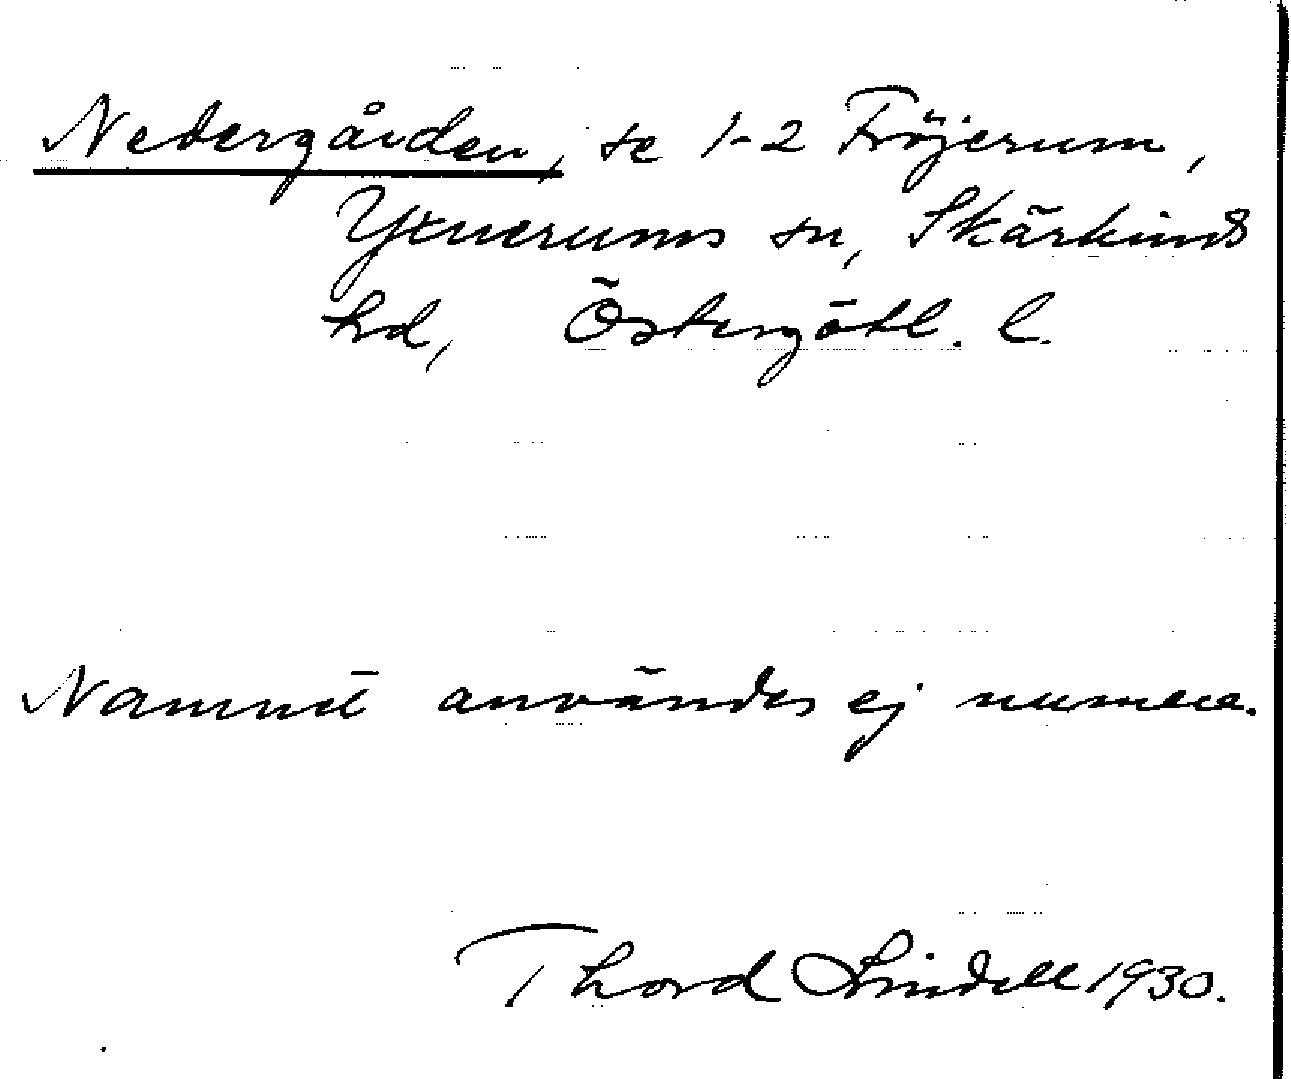 Nedergården, se 1-2 Fröjerum,
Yxnerums sn, Skärkinds
hd, Östergötl. l.
Namnet användes ej numera.
Thord Lindell 1930.